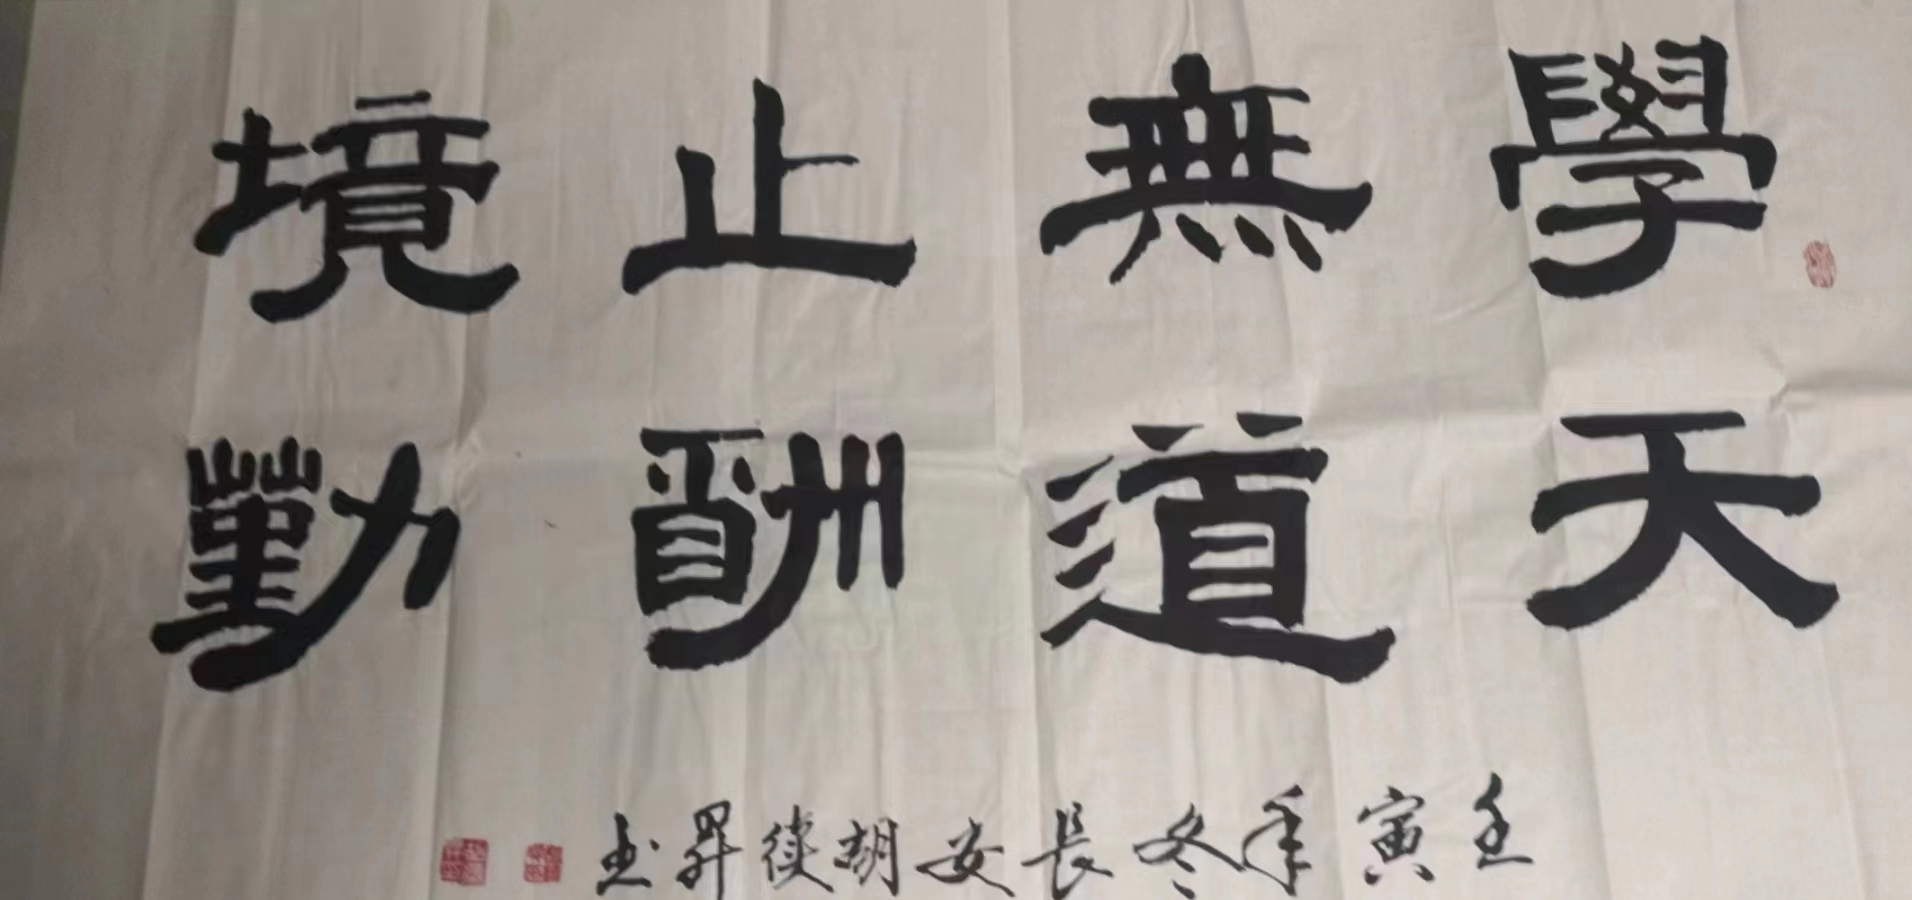 學無止境
天道酬勤
壬寅年冬長安胡俊昇书